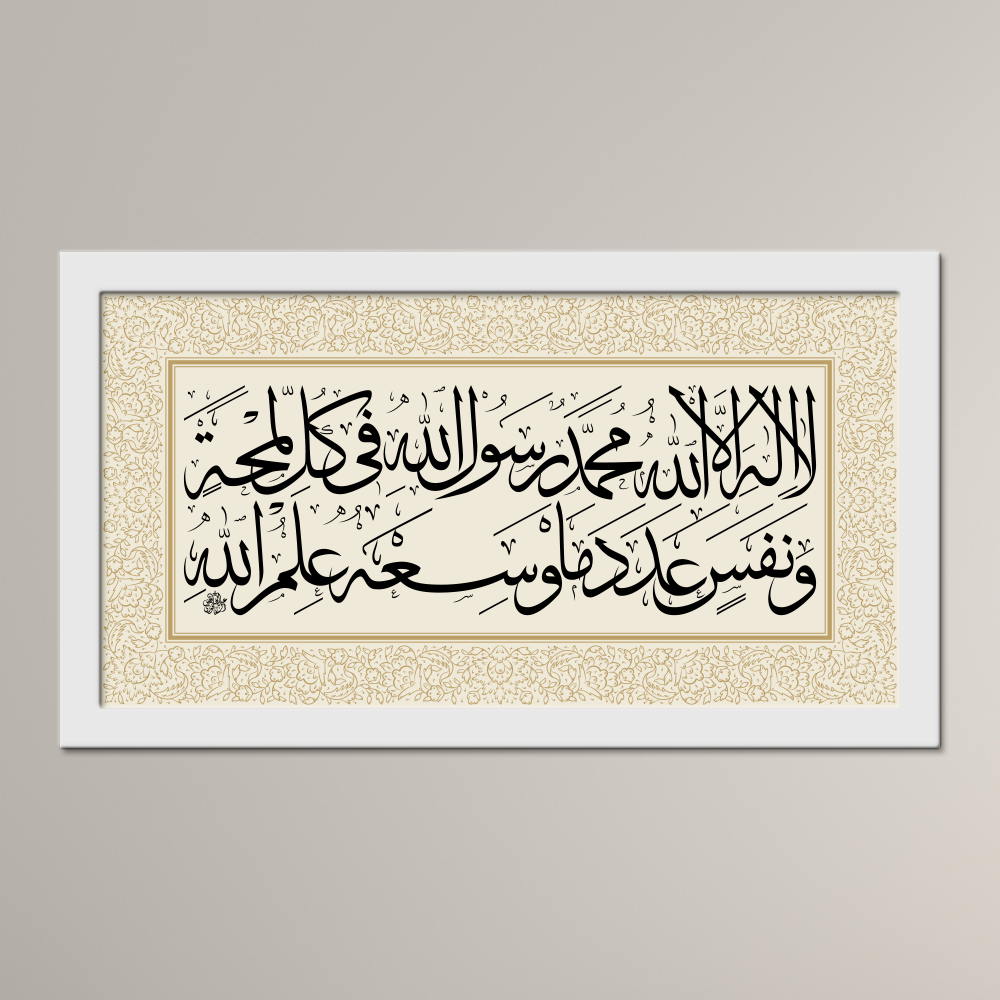 لَا إِلٰهَ إِلَّا اللّٰهُ مُحَمَّدٌ رَسُولُ اللّٰهِ فِي كُلِّ لَمْحَةٍ
وَنَفَسٍ عَدَدَ مَا وَسِعَهُ عِلْمُ اللّٰهِ